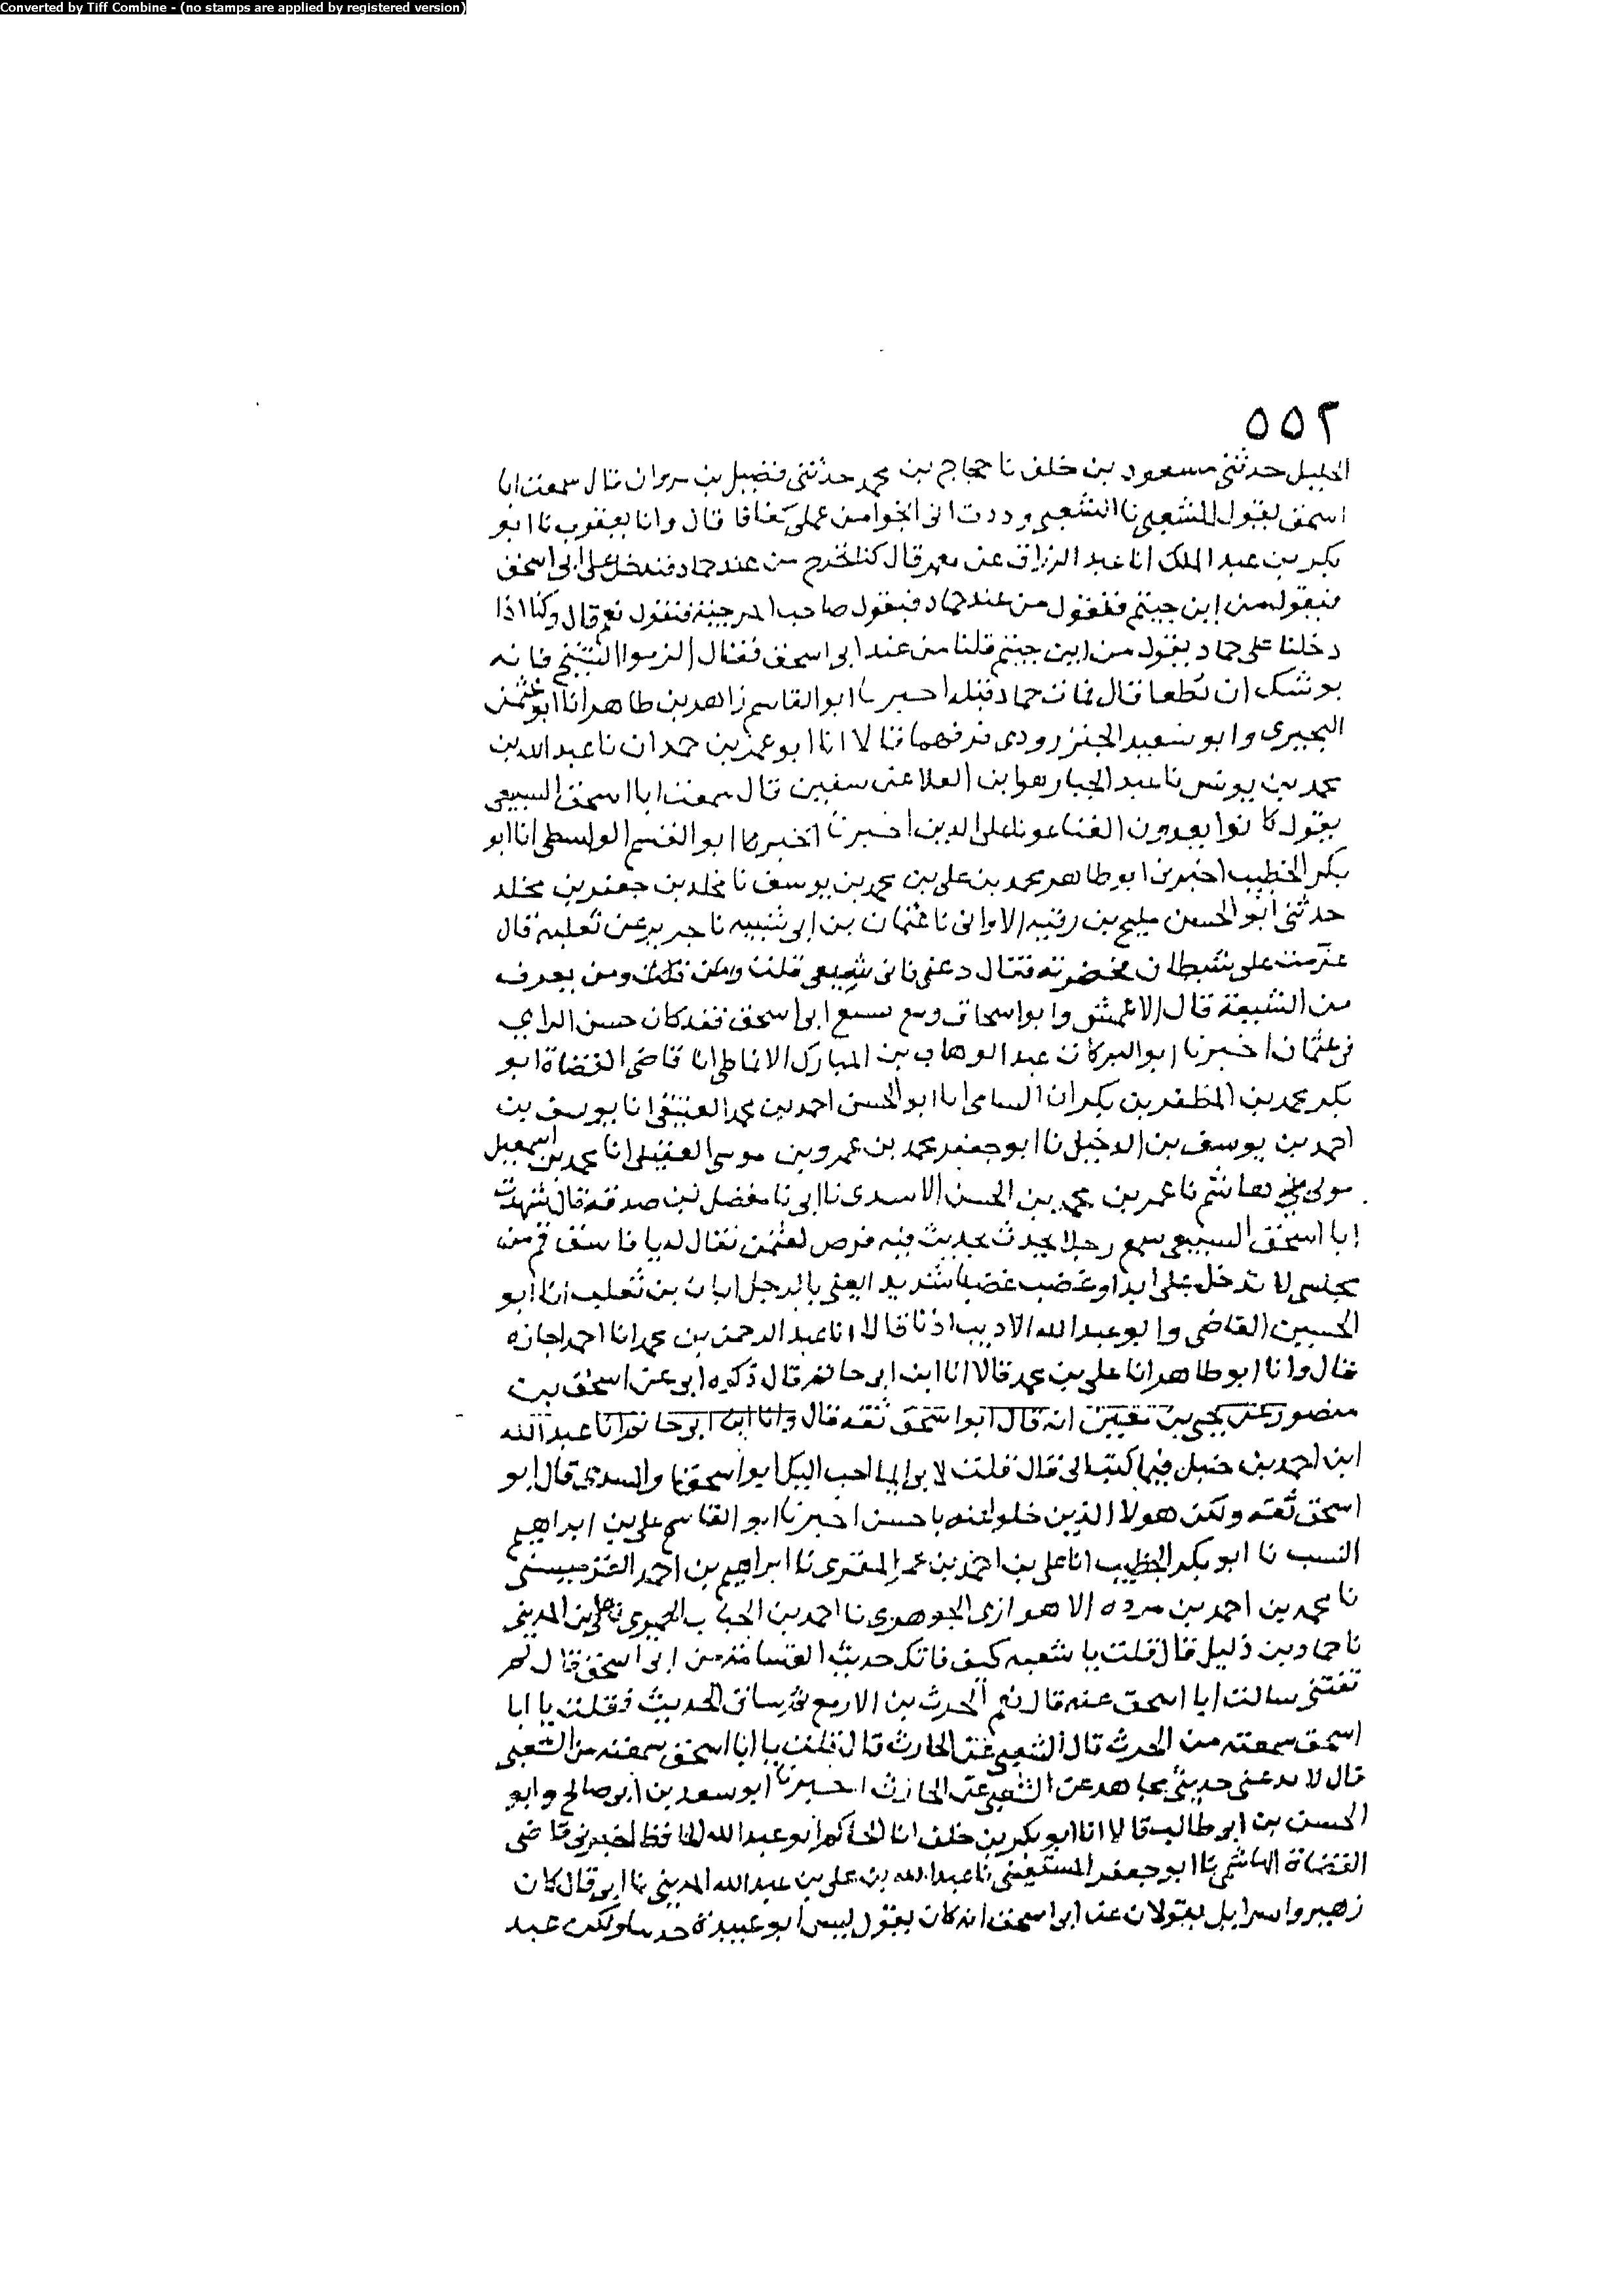 Converted by Tiff Combine - (no stamps are applied by registered version)
٥٥٢
الجليل حدثني مسعود بن خلف نا حجاج بن محمد حدثني فضيل بن مروان قال سمعت ابا
اسحق يقول للشعبي نا الشعبي وددت اني انجوا من عملي كفافا قال وانا يعقوب نا ابو
بكر بن عبد الملك انا عبد الرزاق عن معمر قال كنا نخرج من عند حماد فندخل على ابي اسحق
فيقول من اين جيتم فنقول من عند حماد فيقول صاحب المرجيه فنقول نعم قال وكنا اذا
دخلنا على حماد يقول من اين جيتم قلنا من عند ابي اسحق فقال الزموا الشيخ فانه
يوشك ان يطفا قال فمات حماد قبله اخبرنا ابو القاسم زاهر بن طاهر انا ابو عثمن
البحيري وابو سعيد الجنزرودي فرقهما قالا انا ابو عمرو بن حمدان نا عبد الله بن
محمد بن يونس نا عبد الجبار هو ابن العلا عن سفين قال سمعت ابا اسحق السبيعي
يقول كانوا يعدون الغنا عونا على الدين اخبرنا ابو القسم الواسطي انا ابو
بكر الخطيب اخبرني ابو طاهر محمد بن علي بن محمد بن يوسف نا مخلد بن جعفر بن مخلد
حدثني ابو الحسين مليح بن رقبه الاواني نا عثمان بن ابي شيبه نا جرير عن ثعلبه قال
عزمت على شيطان فحضرته فقال دعني فاني شيعي قلت ومن يعرف
من الشيعة قال الاعمش وابو اسحاق ومع تشيع ابي اسحق فقد كان حسن الراي
في عثمان اخبرنا ابو البركات عبد الوهاب بن المبارك الانماطي انا قاضي القضاة ابو
بكر محمد بن المظفر بن بكران السامي انا ابو الحسن احمد بن محمد العتيقي انا يوسف بن
احمد بن يوسف بن الدخيل نا ابو جعفر محمد بن عمرو بن موسى العقيلي انا محمد بن اسمعيل
مولى بني هاشم نا عمر بن محمد بن الحسن الاسدي نا ابي نا مفضل بن صدقه قال شهدت
ابا اسحق السبيعي سمع رجلا يحدث بحديث فيه فرص لعثمن فقال له يا فاسق قم من
مجلسي لا تدخل علي ابدا وغضب غضبا شديدا يعني بالرجل ابان بن تغلب انا ابو
الحسين القاضي وابو عبد الله الاديب اذنا قالا انا عبد الرحمن بن محمد انا احمد اجازه
قال وانا ابو طاهر انا علي بن محمد قالا انا ابن ابي حاتم قال ذكره ابي عن اسحق بن
منصور عن يحيى بن معين انه قال ابو اسحق ثقه قال وانا ابن ابي حاتم انا عبد الله
ابن احمد بن حنبل فيما كتب الى قال قلت لابي ايما احب اليك ابو اسحق او السدي قال ابو
اسحق ثقه ولكن هولا الذين حملوا عنه باخره اخبرنا ابو القاسم علي بن ابراهيم
النسيب نا ابو بكر الخطيب انا علي بن احمد بن عمر المقري نا ابراهيم بن احمد القرميسيني
نا محمد بن احمد بن مرده الاهوازي الجوهري نا احمد بن الحباب الحميري نا علي بن المديني
نا حماد بن دليل قال قلت يا شعبه كيف فاتك حديث القسامة من ابي اسحق قال لم
تفتني سالت ابا اسحق عنه قال نعم الحرث بن الازمع ثم ساق الحديث فقلت يا ابا
اسحق سمعته من الحرث قال الشعبي عن الحارث قال قلت يا ابا اسحق سمعته من الشعبي
قال لا بد عني حديثي مجاهد عن الشعبي عن الحارث اخبرنا ابو سعد بن ابي صالح وابو
الحسن بن ابي طالب قالا انا ابو بكر بن خلف انا الحاكم ابو عبد الله الحافظ اخبرني قاضي
القضاة الهاشمي نا ابو جعفر المستعيني نا عبد الله بن علي بن عبد الله المديني نا ابي قال كان
زهير واسرايل يقولان عن ابي اسحق انه كان يقول ليس ابو عبيدة حدثنا ولكن عبد